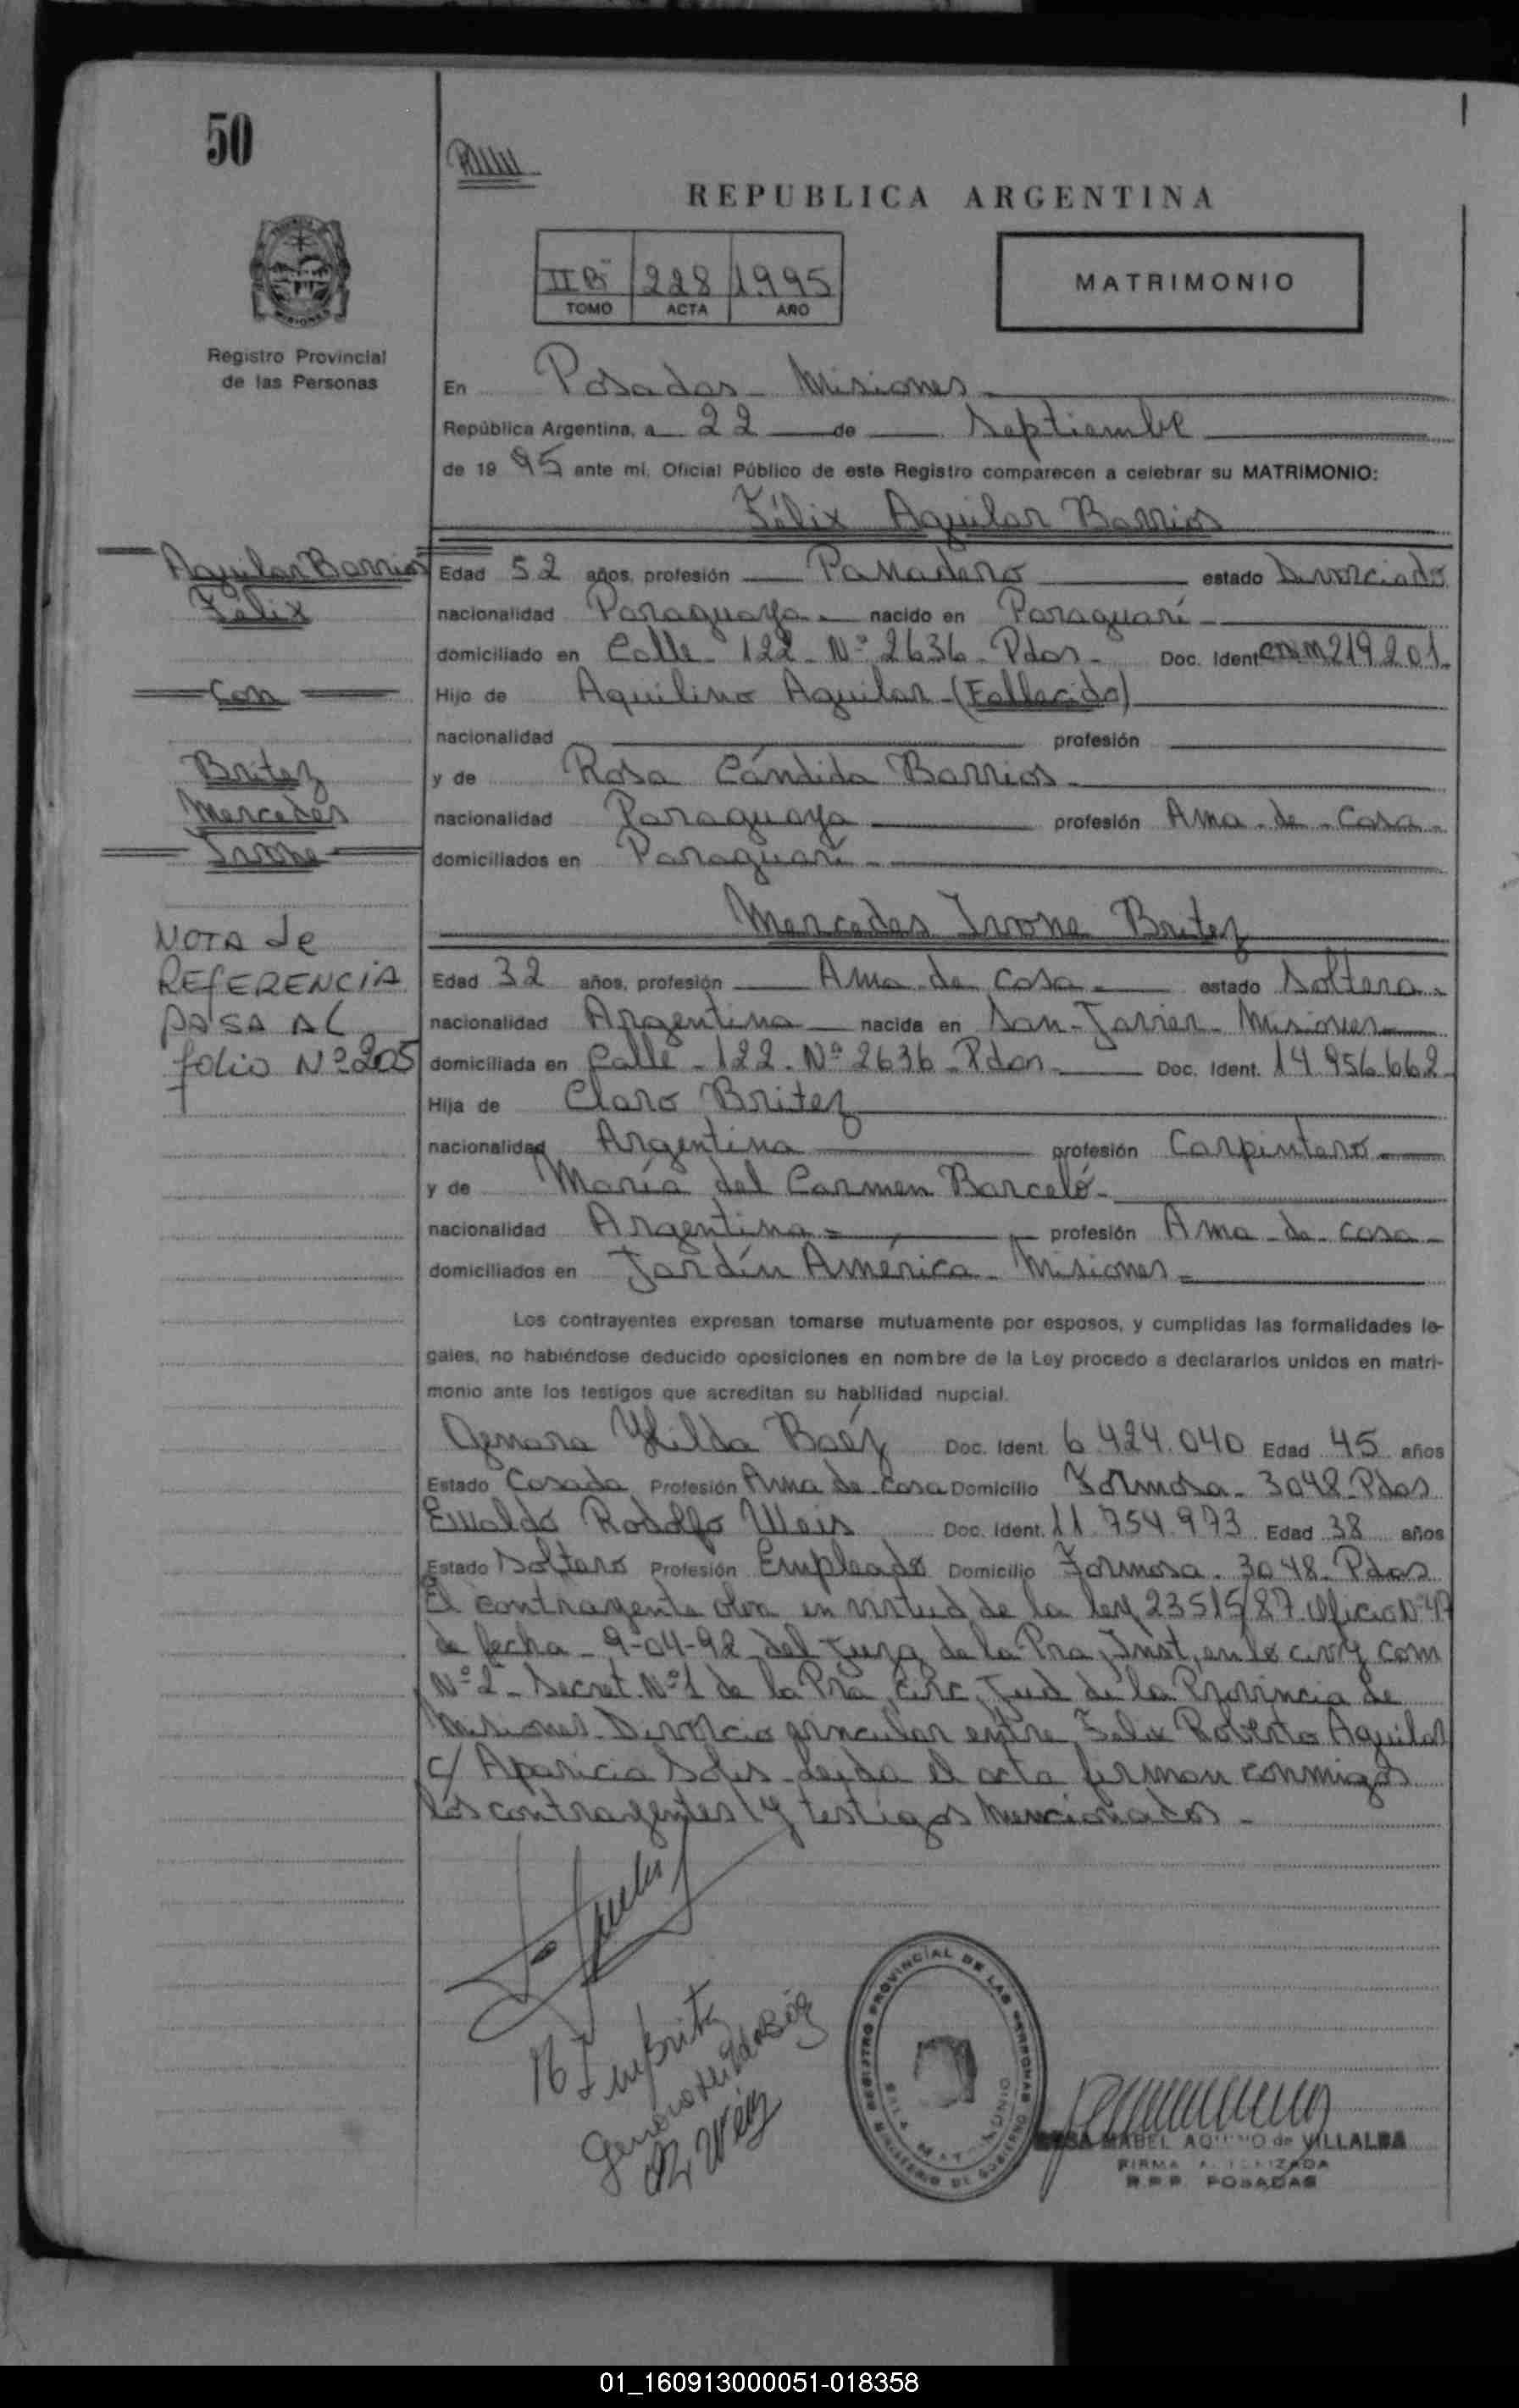 50
REPUBLICA ARGENTINA
II Bº 228 1995
TOMO ACTA AÑO
MATRIMONIO
Registro Provincial
de las Personas
En Posadas - Misiones
República Argentina, a 22 de Septiembre
de 19 95 ante mi, Oficial Público de este Registro comparecen a celebrar su MATRIMONIO:
Félix Aguilar Barrios
Aguilar Barrios
Félix
Con
Britez
Mercedes
Ivone
NOTA de
REFERENCIA
PASA AL
folio Nº 205
Edad 52 años, profesión Panadero estado Divorciado
nacionalidad Paraguaya nacido en Paraguarí
domiciliado en Calle 122 Nº 2636 - Pdas - Doc. Ident 219201
Hijo de Aquilino Aguilar - (Fallecido)
nacionalidad profesión
y de Rosa Cándida Barrios
nacionalidad Paraguaya profesión Ama de Casa
domiciliados en Paraguarí
Mercedes Ivone Britez
Edad 32 años, profesión Ama de casa estado Soltera
nacionalidad Argentina nacida en San Javier - Misiones
domiciliada en Calle 122 Nº 2636 - Pdas Doc. Ident. 14.956.662
Hija de Claro Britez
nacionalidad Argentina profesión Carpintero
y de María del Carmen Barceló
nacionalidad Argentina profesión Ama de casa
domiciliados en Jardín América - Misiones
Los contrayentes expresan tomarse mutuamente por esposos, y cumplidas las formalidades le-
gales, no habiéndose deducido oposiciones en nombre de la Ley procedo a declararlos unidos en matri-
monio ante los testigos que acreditan su habilidad nupcial.
Genara Hilda Baéz Doc. Ident. 6.424.040 Edad 45 años
Estado Casada Profesión Ama de casa Domicilio Formosa - 3048 - Pdas
Ewaldo Rodolfo Weis Doc. Ident. 11.754.973 Edad 38 años
Estado Soltero Profesión Empleado Domicilio Formosa - 3048 - Pdas
El contrayente en virtud de la ley 23515/87 Oficio Nº 47
de fecha - 9-04-92 del Juzg de la Pra Inst, en lo civ y com
Nº 2 - Secret. Nº 1 de la Pra, Circ, Jud de la Provincia de
Misiones Divorcio vincular entre Felix Roberto Aguilar
c/ Aparicia Solis - Leída el acta firman conmigo
los contrayentes y testigos mencionados -
Genara Hilda Baéz
R Weis
REGISTRO PROVINCIAL DE LAS PERSONAS
MINISTERIO DE GOBIERNO
SALA MATRIMONIO
MABEL AQUINO de VILLALBA
FIRMA AUTORIZADA
R.P.P. POSADAS
01_160913000051-018358